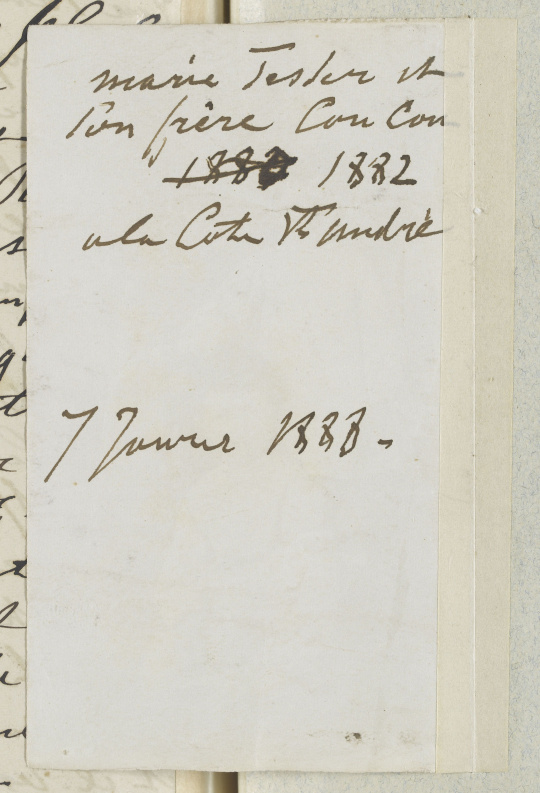 marie Tester et
son frère Con Con
1880 1882
a la Cote St André
7 Janvier 1888 -